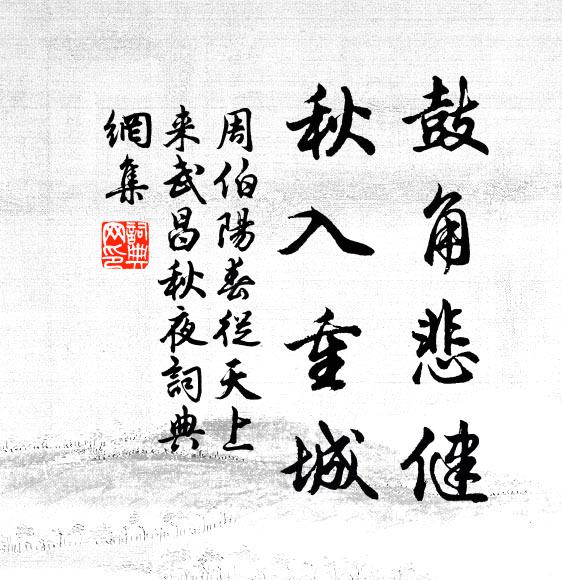 鼓角悲健
秋入重城
周伯陽春從天上
来武昌秋夜詞典
網集
詞典網印